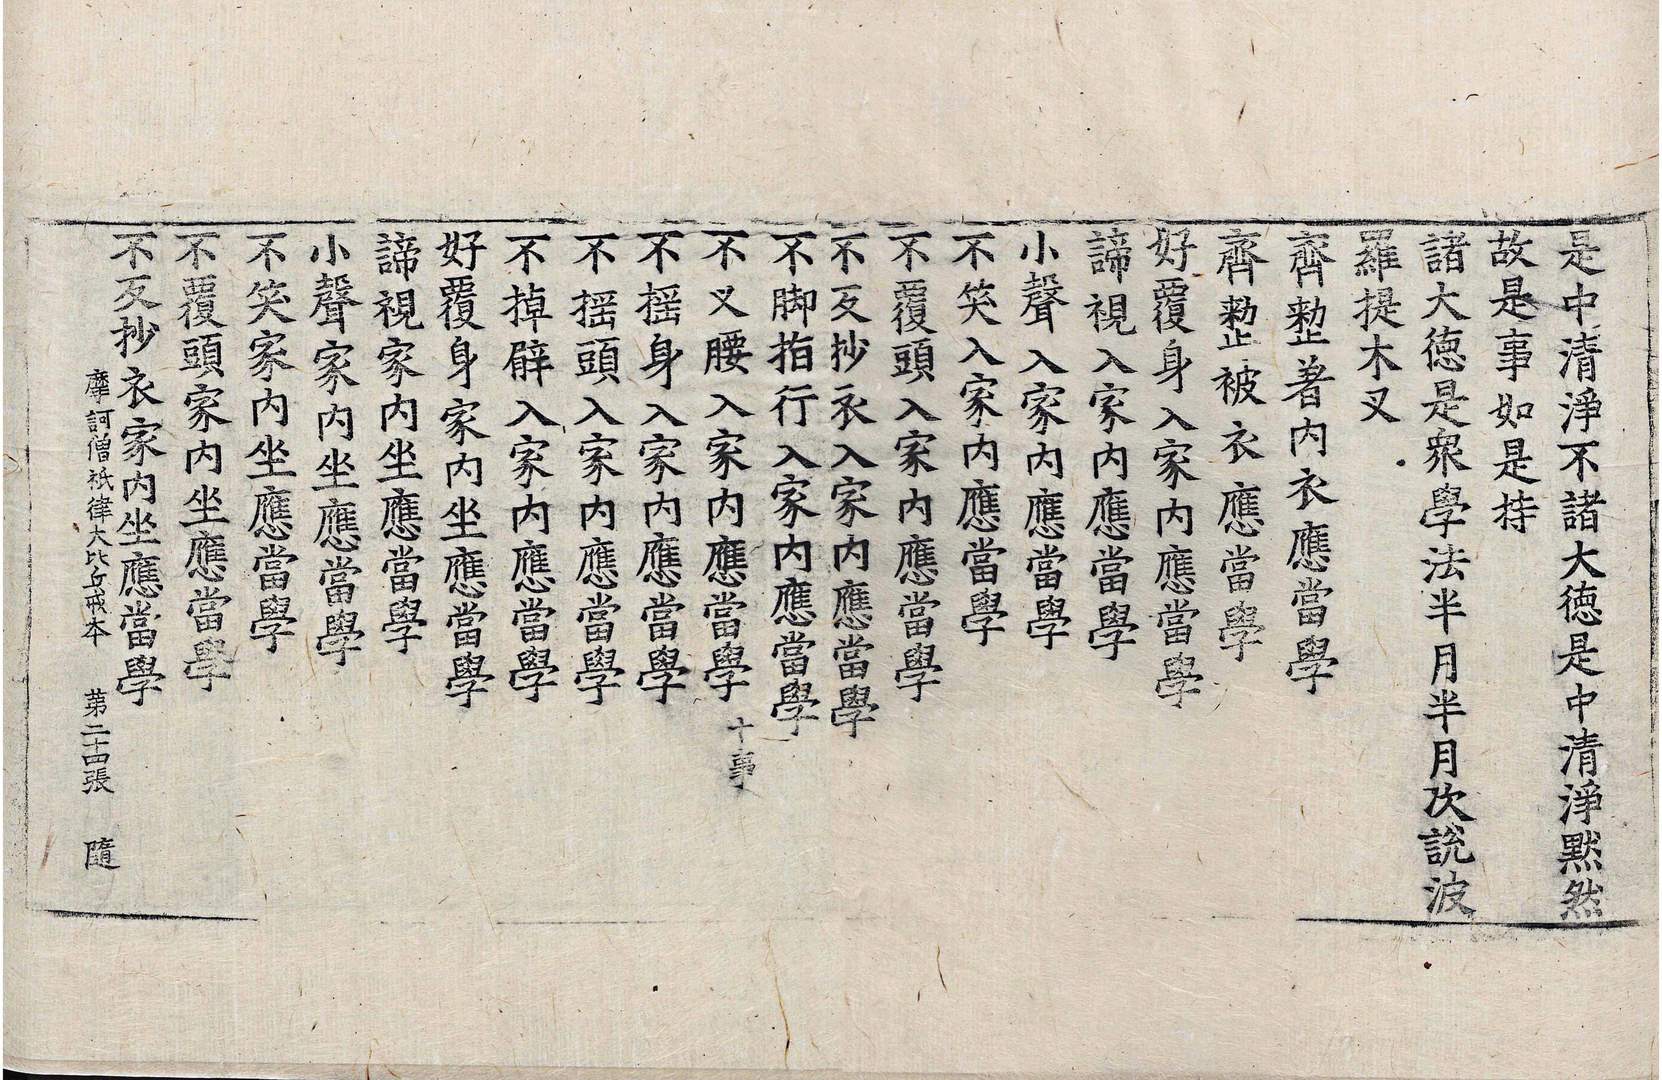 是中清淨不諸大徳是中清淨黙然
故是事如是持
諸大徳是衆學法半月半月次説波
羅提木叉
齊整著内衣應當學
齊整被衣應當學
好覆身入家内應當學
諦視入家内應當學
小聲入家内應當學
不笑入家内應當學
不覆頭入家内應當學
不反抄衣入家内應當學
不脚指行入家内應當學
不叉腰入家内應當學 十事
不揺身入家内應當學
不揺頭入家内應當學
不掉臂入家内應當學
好覆身家内坐應當學
諦視家内坐應當學
小聲家内坐應當學
不笑家内坐應當學
不覆頭家内坐應當學
不反抄衣家内坐應當學
摩訶僧祇律大比丘戒本 第二十四張 隨